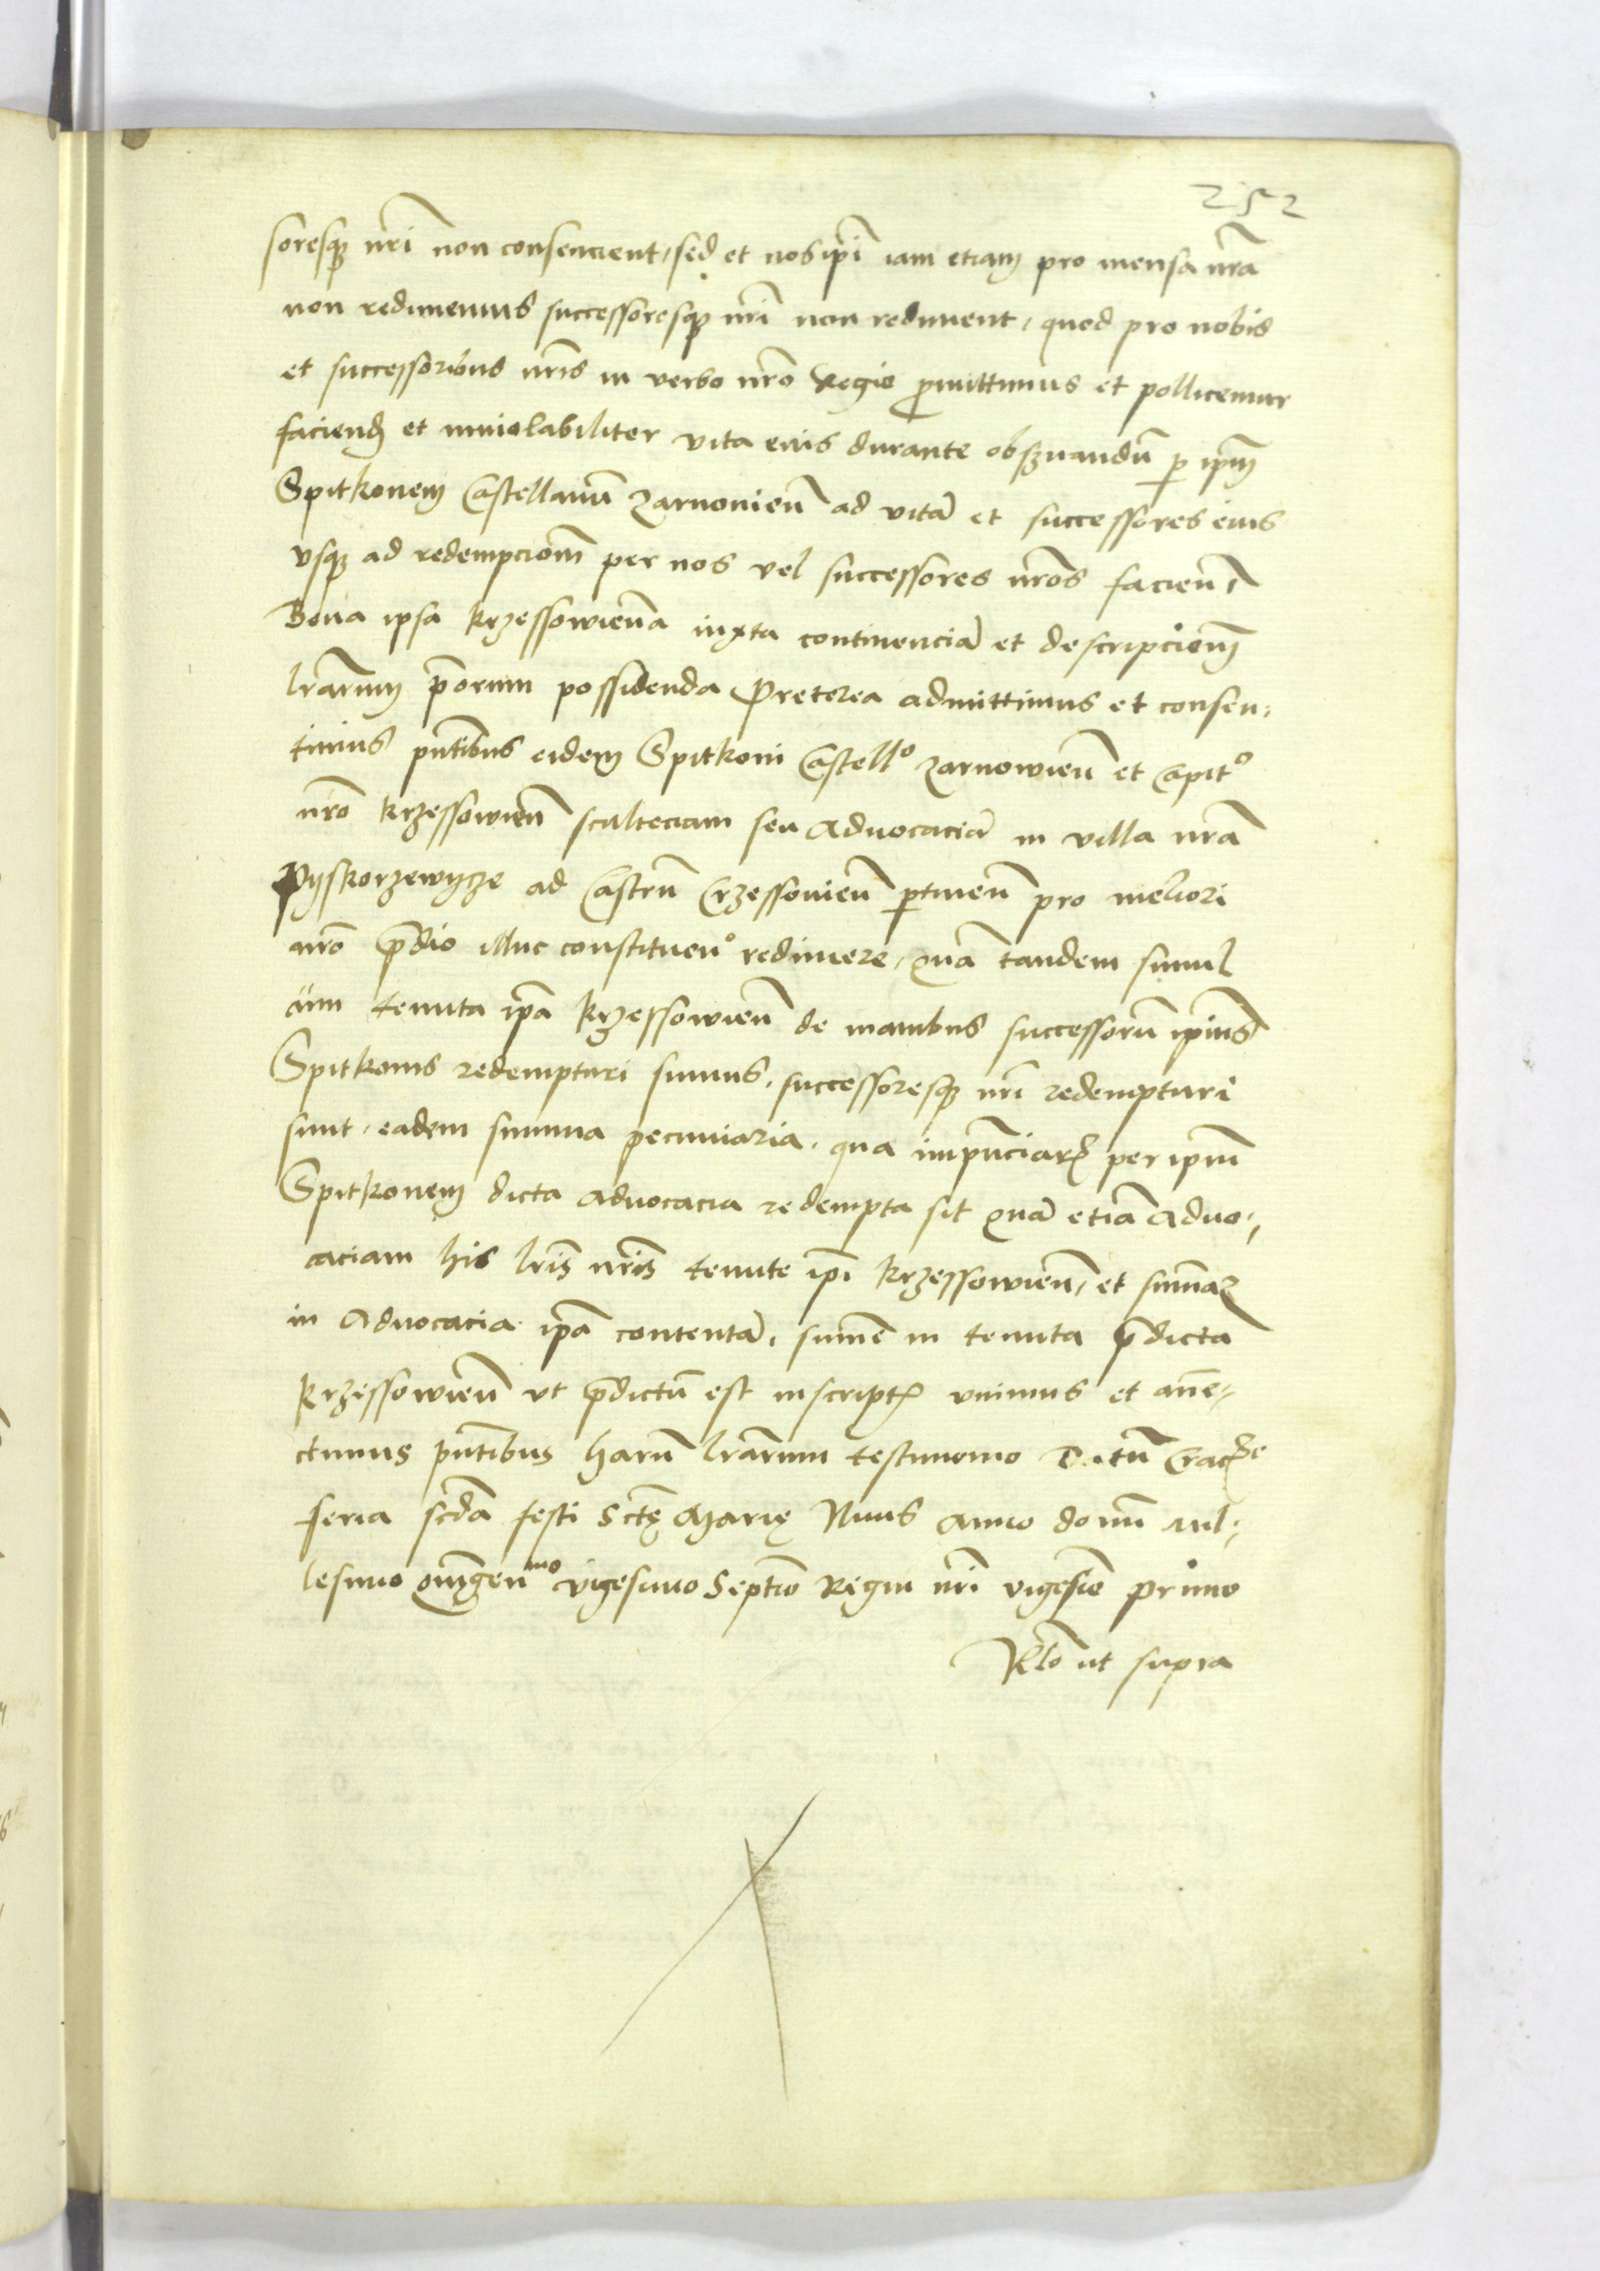 252
soresq nri non consencient, sed et nos ipi iam etiam pro mensa nra
non redimemus successoresq nri non rediment, quod pro nobis
et successoribus nris in verbo nro Regio promittimus et pollicemur
faciend et inviolabiliter vita eius durante observandu per ipm
Spitkonem Castellanu Zarnovien ad vita et successores eius
vsq ad redempcionem per nos vel successores nros facien
Bona ipsa Krzessowiena iuxta continencia et descripcionem
lrarum priorum possidenda Preterea admittimus et consen,
timus pntibus eidem Spitkoni Castello Zarnowien et capito
nro Krzessowien sculteciam seu Advocacia in villa nra
Pyskorzewycze ad Castru Crzessovien ptinen pro meliori
nro pdio illuc constituen redimere, qua tandem simul
cum tenuta ipa Krzessowien de manibus successoru ipius
Spitkonis redempturi sumus, successoresq nri redempturi
sunt, eadem summa pecuniaria, qua impnciar per ipm
Spitkonem dicta advocacia redempta sit qua etia Advo,
caciam his lris nris tenute ipi Krzessowien, et summa
in Advocacia ipa contenta, sume in tenuta pdicta
Krzessowien vt pdictu est inscripte vnimus et ane,
ctimus pntibus haru lrarum testimonio Datu Crac
feria scda festi Scte Marie Nivis Anno domi mil,
lesimo Quingenmo vigesimo Septio Regni nri vigesie primo
Rlo ut supra